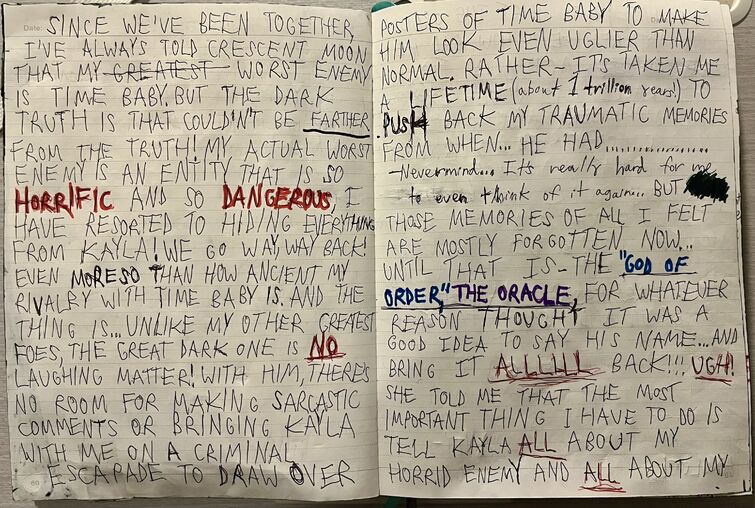 Date:
SINCE WE'VE BEEN TOGETHER,
I'VE ALWAYS TOLD CRESCENT MOON
THAT MY GREATEST WORST ENEMY
IS TIME BABY. BUT THE DARK
TRUTH IS THAT COULDN'T BE FARTHER
FROM THE TRUTH! MY ACTUAL WORST
ENEMY IS AN ENTITY THAT IS SO
HORRIFIC AND SO DANGEROUS, I
HAVE RESORTED TO HIDING EVERYTHING
FROM KAYLA! WE GO WAY, WAY BACK!
EVEN MORESO THAN HOW ANCIENT MY
RIVALRY WITH TIME BABY IS. AND THE
THING IS... UNLIKE MY OTHER GREATEST
FOES, THE GREAT DARK ONE IS NO
LAUGHING MATTER! WITH HIM, THERE'S
NO ROOM FOR MAKING SARCASTIC
COMMENTS OR BRINGING KAYLA
WITH ME ON A CRIMINAL
ESCAPADE TO DRAW OVER
60
POSTERS OF TIME BABY TO MAKE
HIM LOOK EVEN UGLIER THAN
NORMAL. RATHER- IT'S TAKEN ME
A LIFETIME (about 1 trillion years!) TO
PUSH BACK MY TRAUMATIC MEMORIES
FROM WHEN... HE HAD.............
-Nevermind... It's really hard for me
to even think of it again... BUT
THOSE MEMORIES OF ALL I FELT
ARE MOSTLY FORGOTTEN NOW...
UNTIL THAT IS- THE "GOD OF
ORDER," THE ORACLE, FOR WHATEVER
REASON THOUGHT IT WAS A
GOOD IDEA TO SAY HIS NAME... AND
BRING IT ALLLLLL BACK!!! UGH!
SHE TOLD ME THAT THE MOST
IMPORTANT THING I HAVE TO DO IS
TELL KAYLA ALL ABOUT MY
HORRID ENEMY AND ALL ABOUT MY